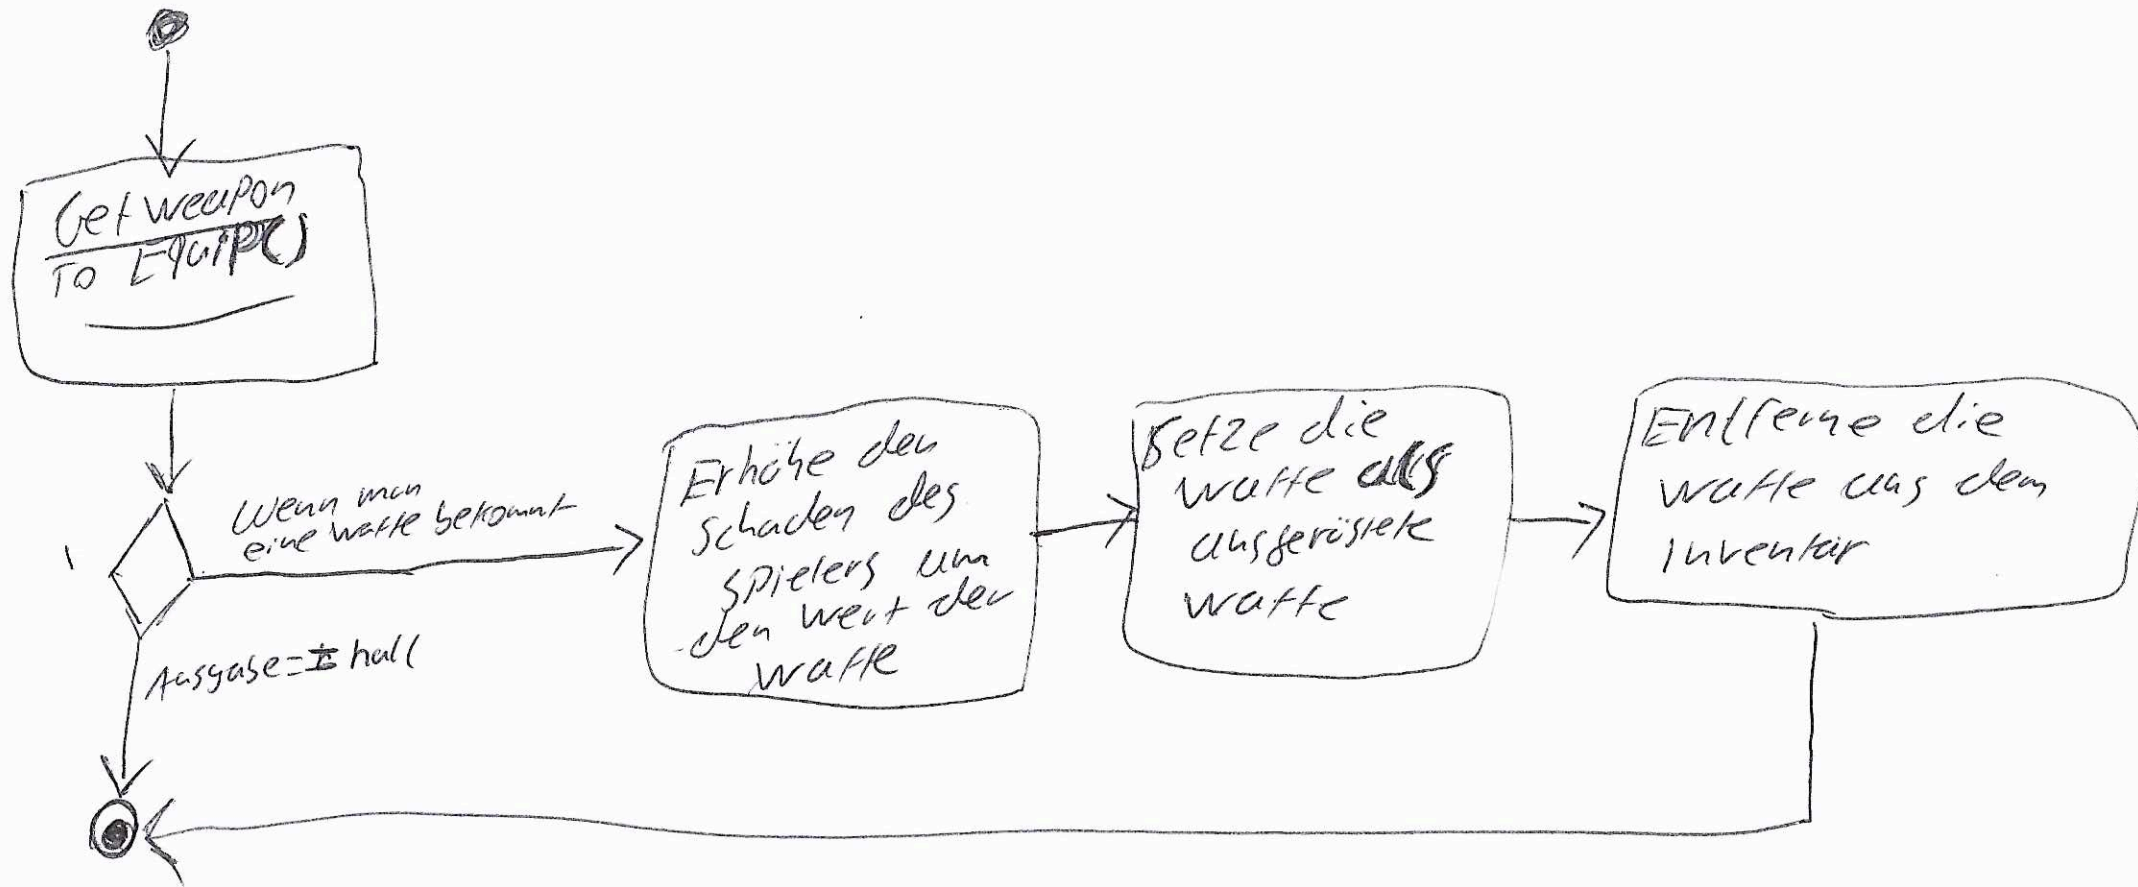 Get weapon
To Equip()
Wenn man
eine waffe bekommt
Ausgabe = null
Erhöhe den
schaden des
spielers um
den wert der
waffe
Setze die
waffe als
ausgerüstete
waffe
Entferne die
waffe aus dem
inventar